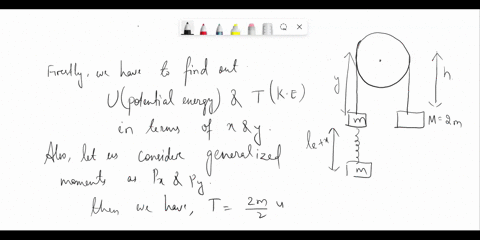 Firstly, we have to find out
U(potential energy) & T(K.E)
in terms of x & y.
Also, let us consider generalized
moments as Px & Py.
then we have, T = 2m/2
y
h
m
M = 2m
le+x
m